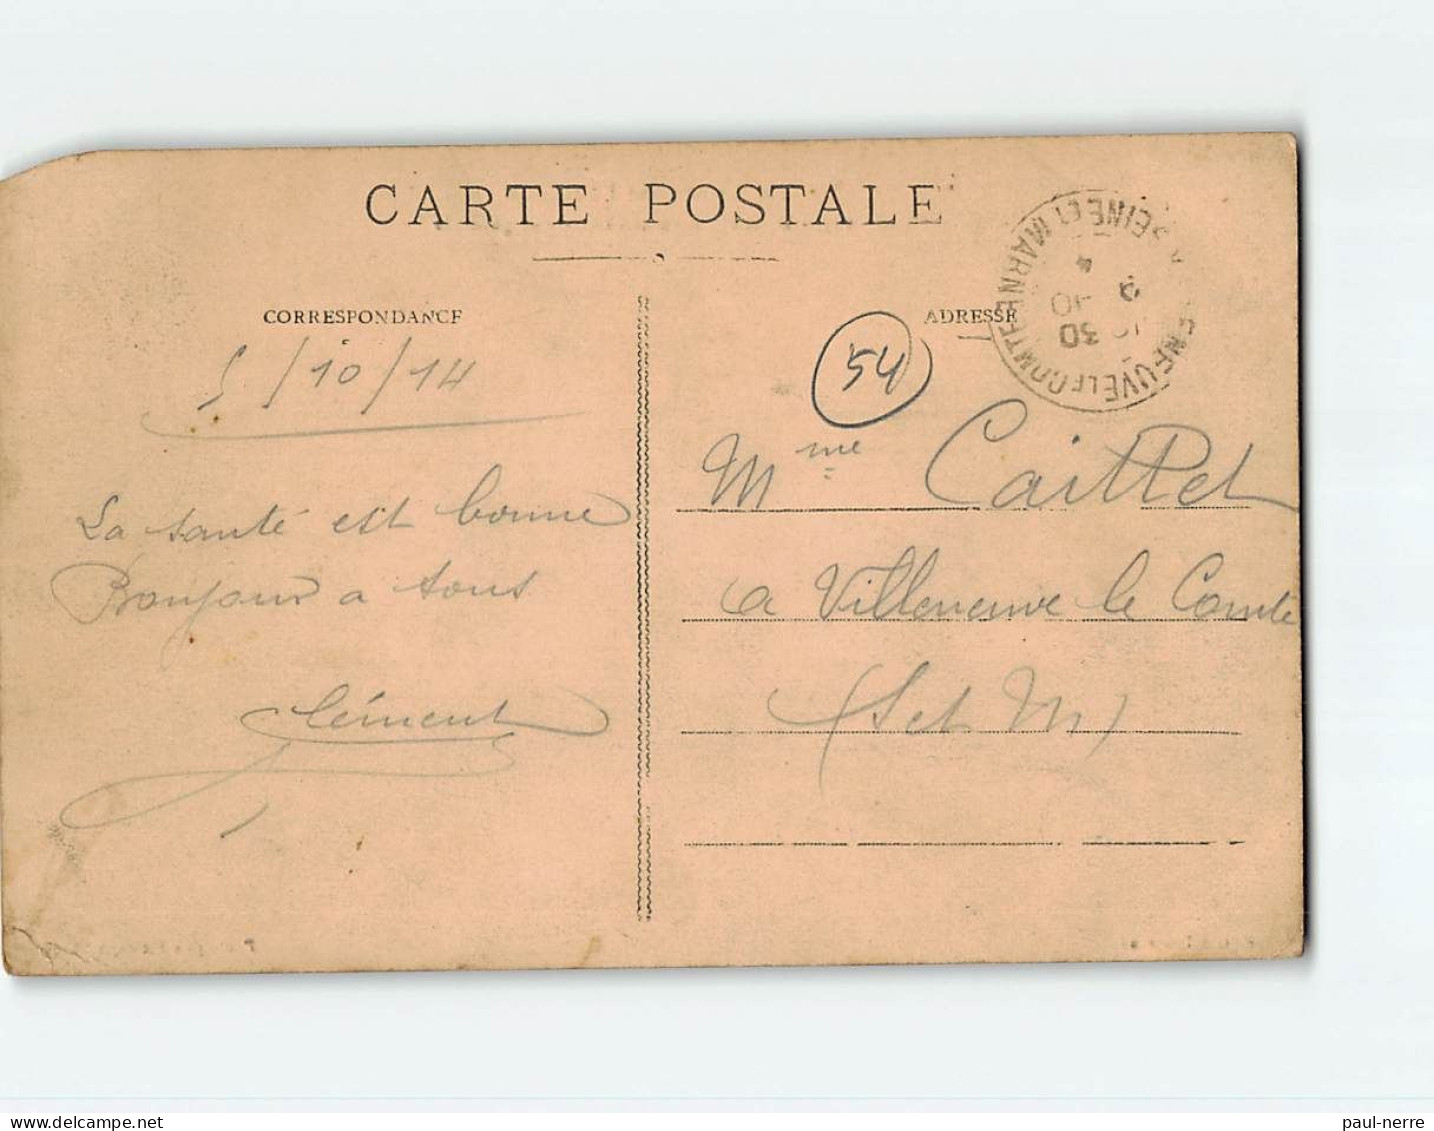 CARTE POSTALE
CORRESPONDANCE
5/10/14
La santé est bonne
Bonjour a tous
Clément
ADRESSE
54
Mme Caillet
a Villeneuve le Comte
(S et M)
VILLENEUVE LE COMTE
SEINE ET MARNE
30
paul-nerre